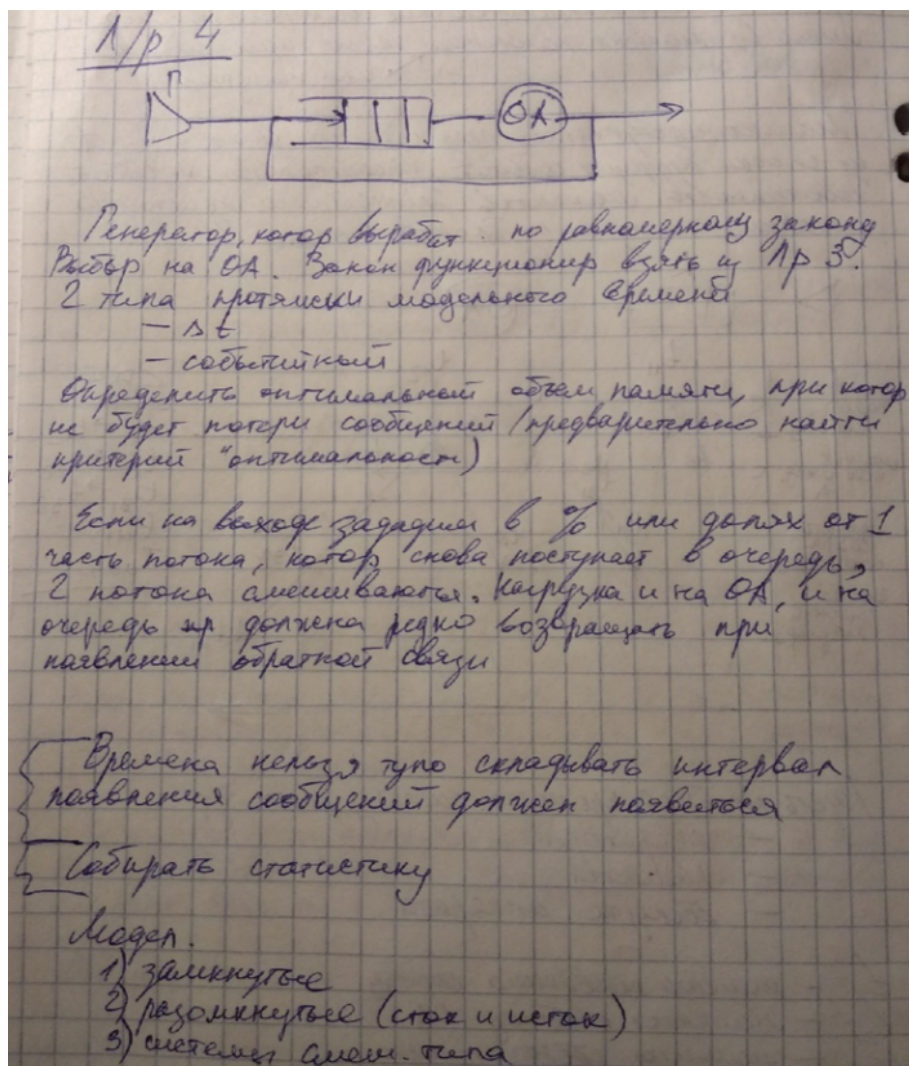 Л/р 4
П
ОА
Генератор, котор вырабат. по равномерному закону
Выбор на ОА. Закон функционир взять из Лр 3.
2 типа протяжки модельного времени
– Δt
– событийный
Определить оптимальный объем памяти, при котор
не будет потери сообщений (предварительно найти
критерий "оптимальности)
Если на выходе зададим в % или долях от 1
часть потока, котор снова поступает в очередь,
2 потока смешиваются. Нагрузка и на ОА, и на
очередь должна резко возвращать при
появлении обратной связи
Времена нельзя тупо складывать интервал
появления сообщений должен появиться
Собирать статистику
Модел.
1) замкнутые
2) разомкнутые (сток и исток)
3) системы смеш. типа